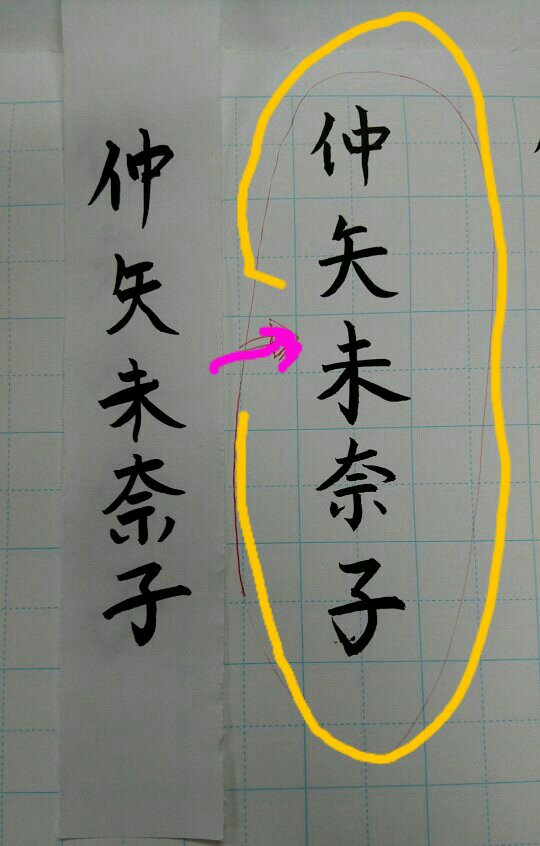 仲矢未奈子
仲矢未奈子